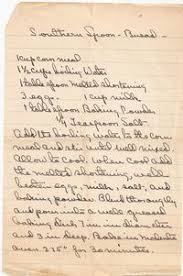 Southern Spoon-Bread
1 cup corn meal
1 1/2 cups boiling water
1 table spoon melted shortening
2 eggs 1 cup milk
1 table spoon Baking Powder
1/2 Teaspoon Salt
Add the boiling water to the corn
meal and stir until well mixed.
Allow to cool. When cool add
the melted shortening, well
beaten eggs, milk, salt, and
baking powder. Blend thoroughly
and pour into a well greased
baking dish 7 in. in diameter
and 3 in. deep. Bake in moderate
oven 375° for 30 minutes.